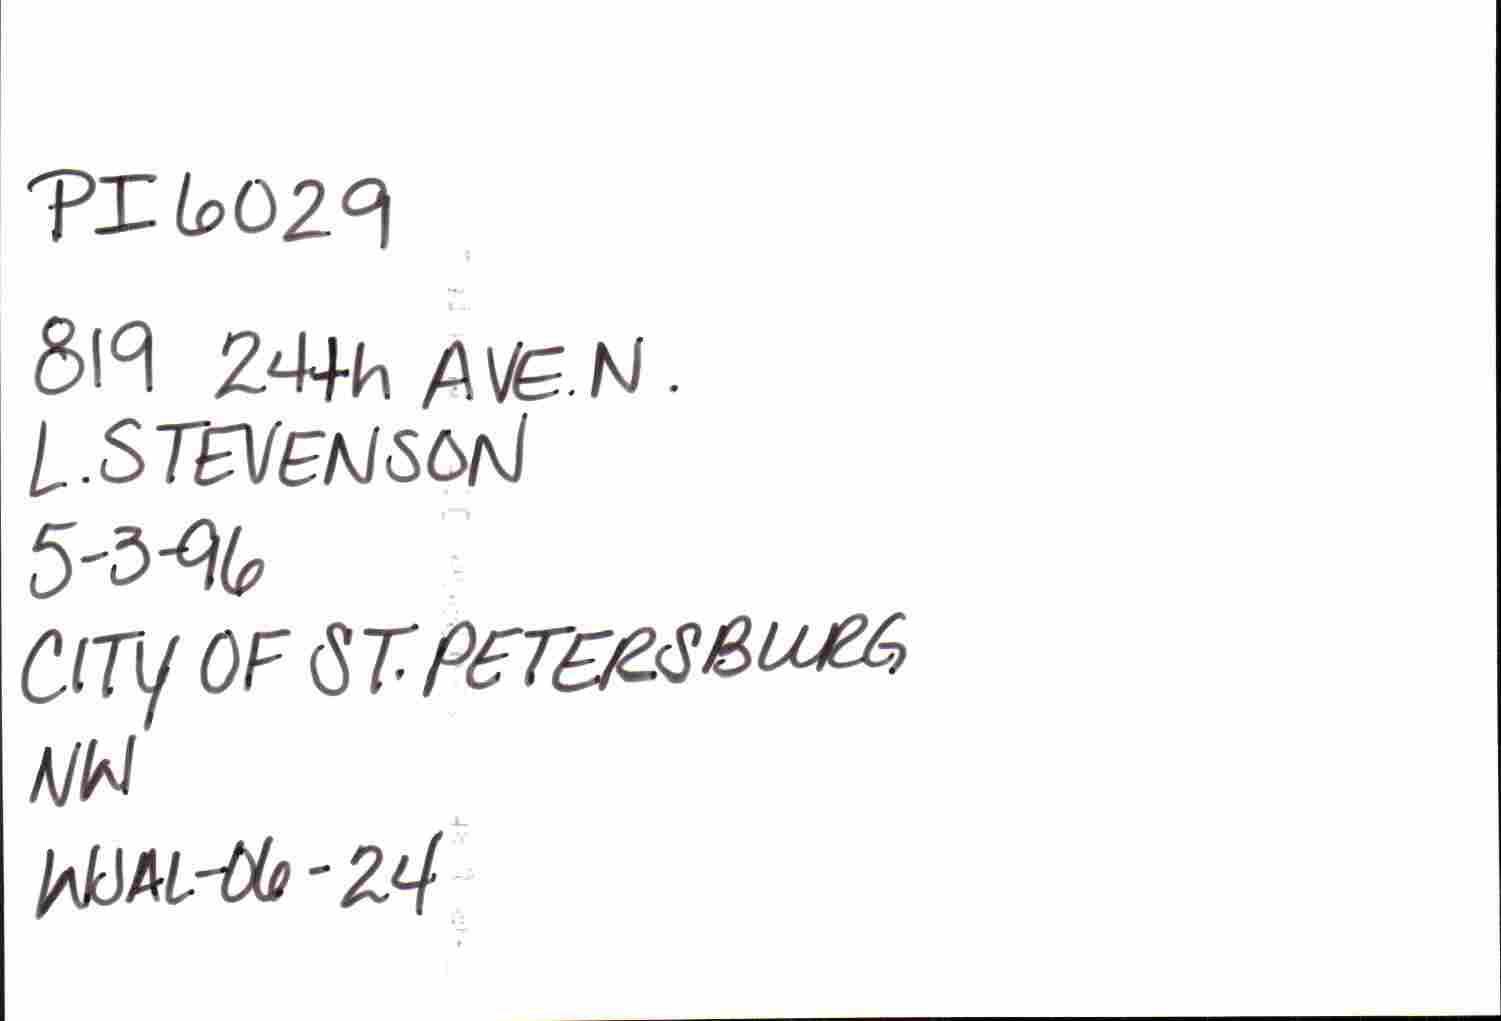 PI6029
819 24th AVE. N.
L. STEVENSON
5-3-96
CITY OF ST. PETERSBURG
NW
WJAL-06-24